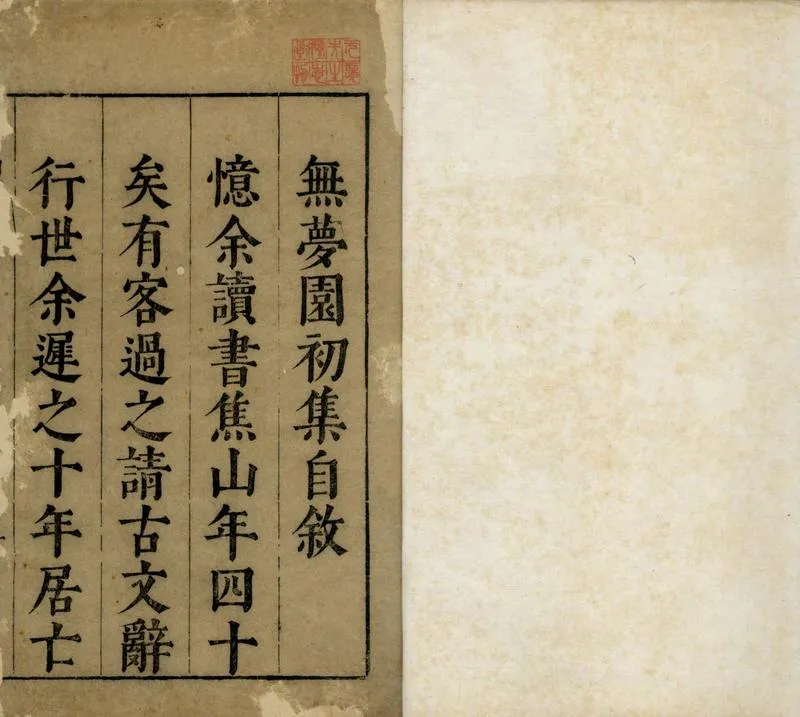 無夢園初集自敘
憶余讀書焦山年四十
矣有客過之請古文辭
行世余遲之十年居亡